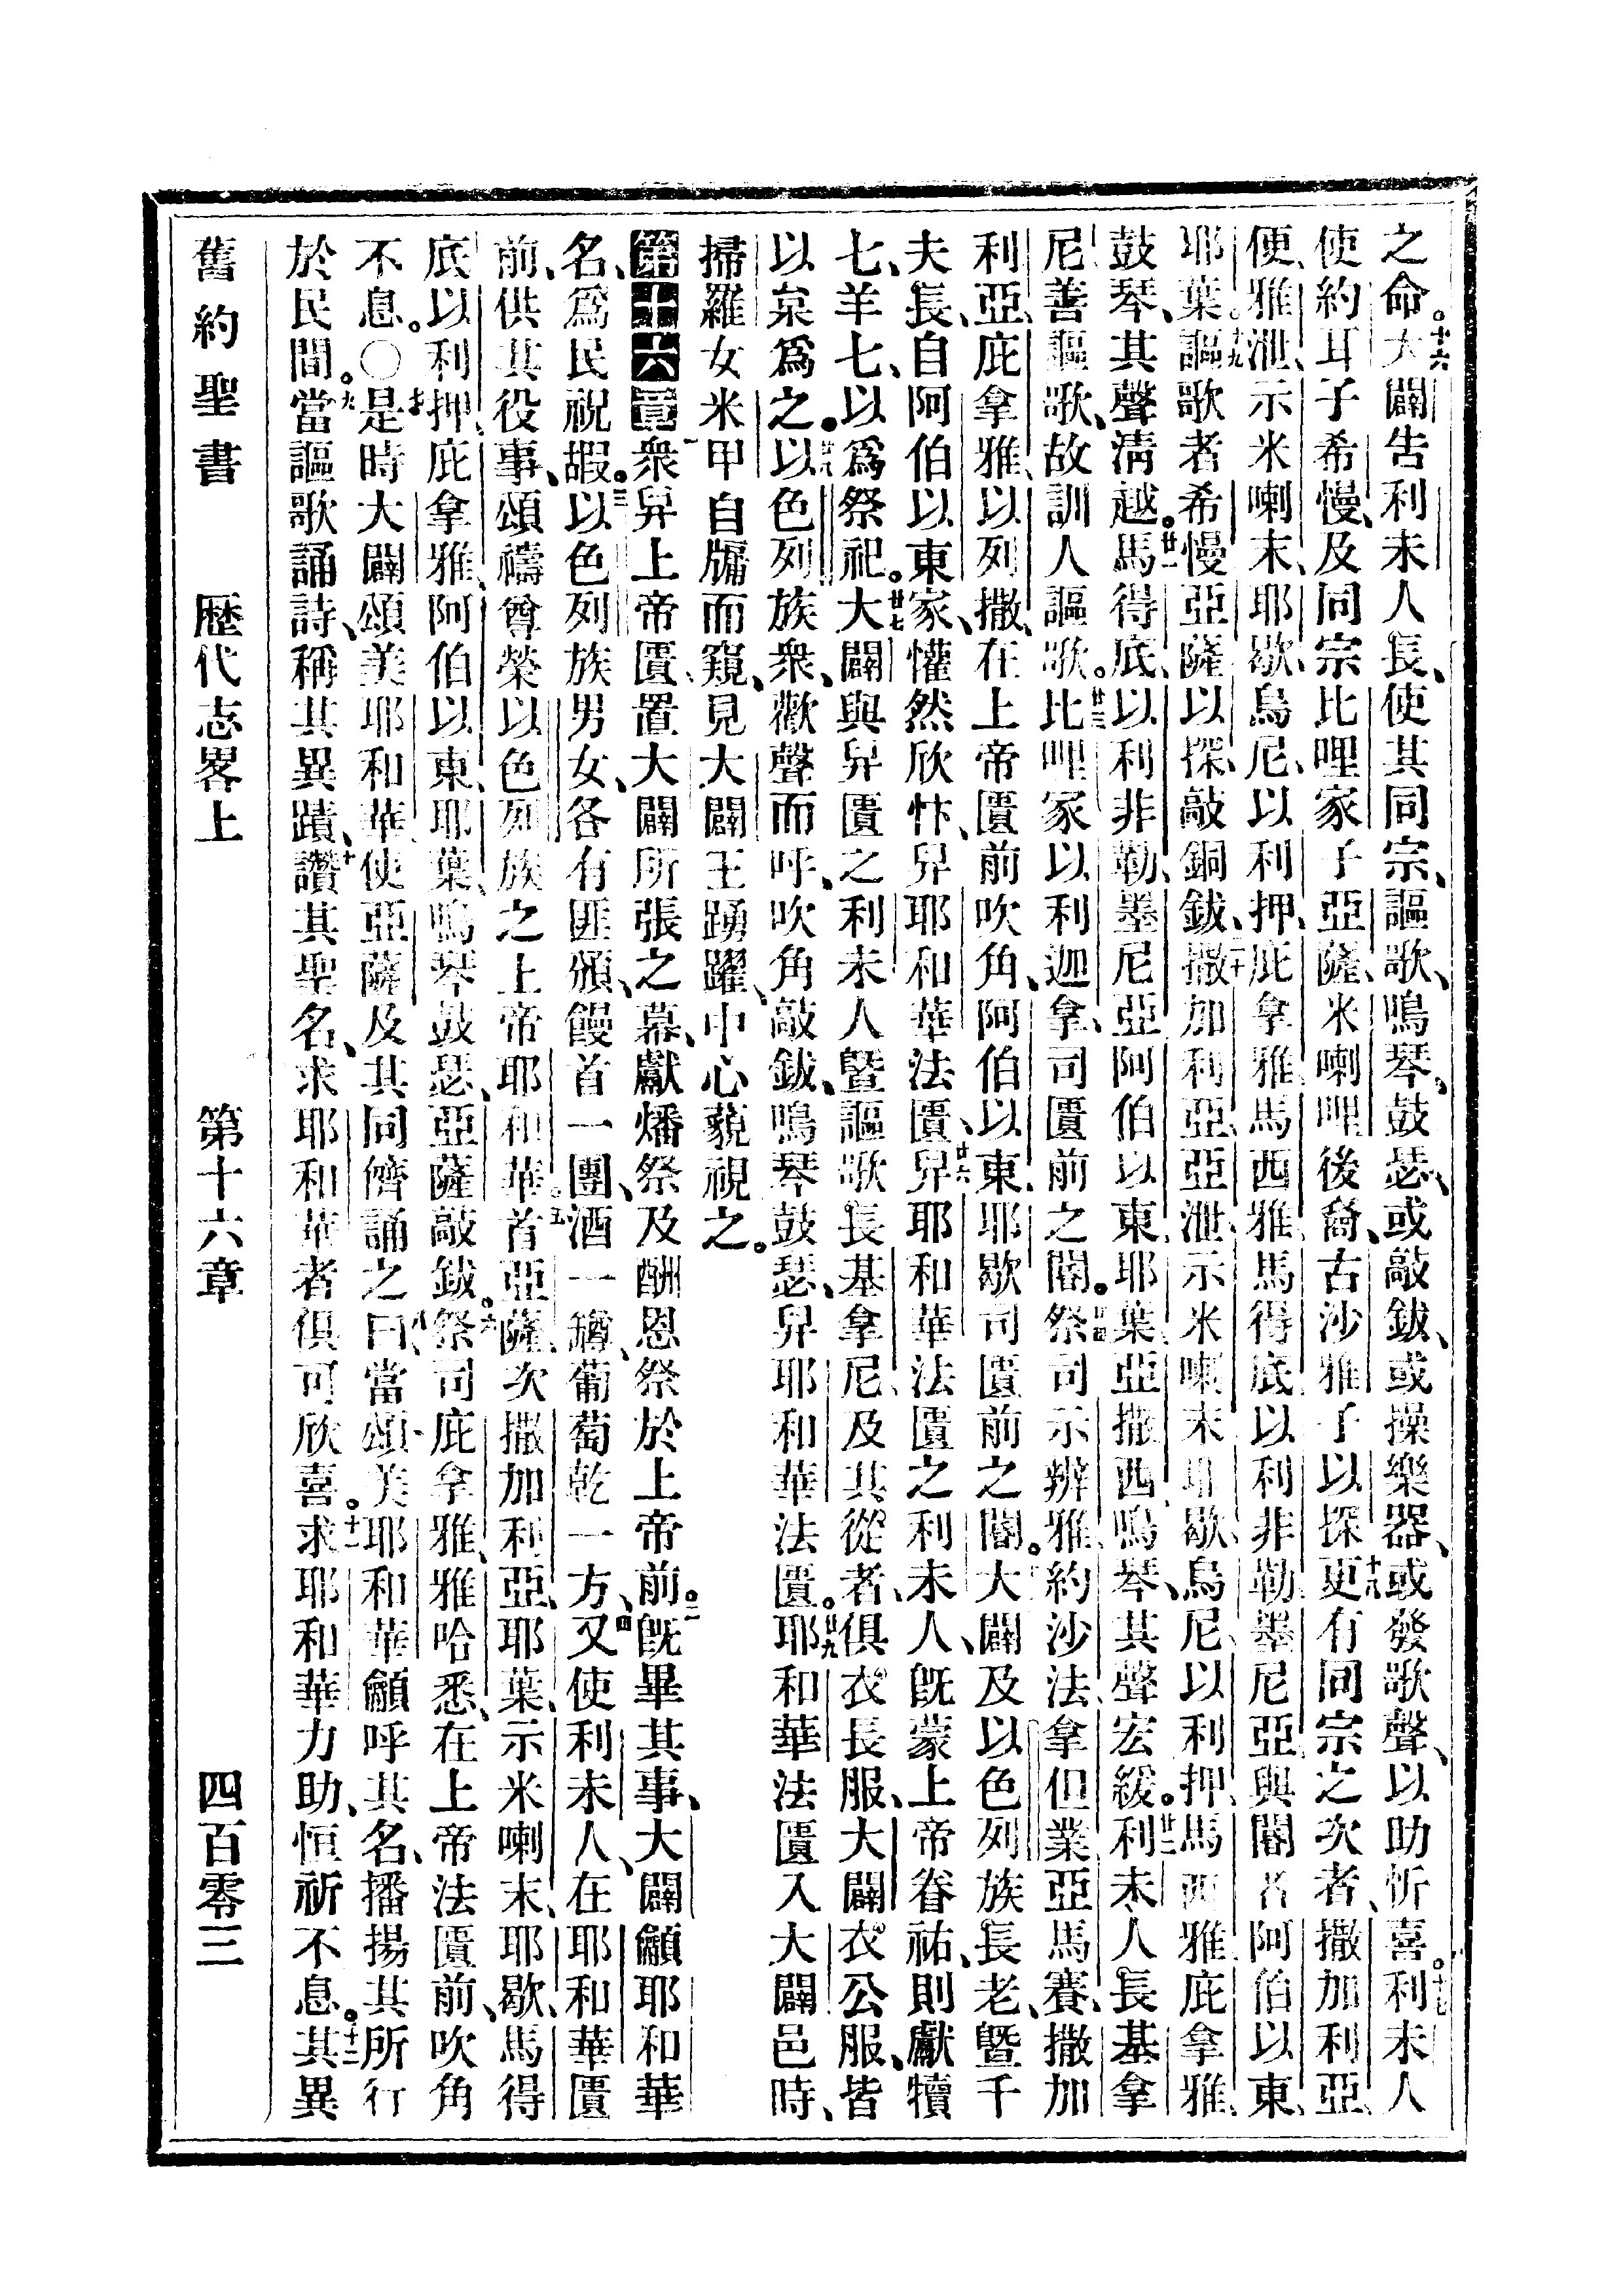 之命。十六大闢告利未人長、使其同宗、謳歌、鳴琴、鼓瑟、或敲鈸、或操樂器、或發歌聲、以助忻喜。十七利未人
使約耳子希慢、及同宗比哩家子亞薩、米喇哩後裔、古沙雅子以探、十八更有同宗之次者、撒加利亞、
便、雅泄、示米喇末、耶歇、烏尼、以利押、庇拿雅、馬西雅、馬得底、以利非勒、墨尼亞、與閽者阿伯以東、
耶葉。十九謳歌者希慢亞薩以探、敲銅鈸、二十撒加利亞、亞泄、示米喇末、耶歇、烏尼、以利押、馬西雅、庇拿雅、
鼓琴、其聲淸越。廿一馬得底、以利非勒、墨尼亞、阿伯以東、耶葉、亞撒西、鳴琴、其聲宏緩。廿二利未人長基拿
尼善謳歌、故訓人謳歌。廿三比哩家以利迦拿、司匱前之閽。廿四祭司示辨雅、約沙法、拿但業、亞馬賽、撒加
利亞、庇拿雅、以列撒、在上帝匱前吹角、阿伯以東、耶歇司匱前之閽。大闢及以色列族長老、曁千
夫長、自阿伯以東家、懽然欣忭、舁耶和華法匱、廿六舁耶和華法匱之利未人、旣蒙上帝眷祐、則獻犢
七、羊七、以爲祭祀。廿七大闢與舁匱之利未人、曁謳歌長基拿尼、及其從者、俱衣長服、大闢衣公服、皆
以枲爲之。廿八以色列族衆、歡聲而呼、吹角敲鈸、鳴琴鼓瑟、舁耶和華法匱。廿九耶和華法匱入大闢邑時、
掃羅女米甲自牖而窺、見大闢王踴躍、中心藐視之。
第十六章 一衆舁上帝匱、置大闢所張之幕、獻燔祭及酬恩祭於上帝前。二旣畢其事、大闢籲耶和華
名、爲民祝嘏。三以色列族男女、各有匪頒、饅首一團、酒一罇、葡萄乾一方、四又使利未人、在耶和華匱
前、供其役事、頌禱尊榮以色列族之上帝耶和華。五首亞薩、次撒加利亞、耶葉、示米喇末、耶歇、馬得
底以利押、庇拿雅、阿伯以東、耶葉、鳴琴鼓瑟、亞薩敲鈸。六祭司庇拿雅、雅哈悉、在上帝法匱前、吹角
不息。〇七是時大闢頌美耶和華、使亞薩及其同儕誦之曰、八當頌美耶和華、籲呼其名、播揚其所行
於民間。九當謳歌誦詩、稱其異蹟、十讚其聖名、求耶和華者俱可欣喜。十一求耶和華力助、恒祈不息。十二其異
舊約聖書 歷代志畧上 第十六章 四百零三